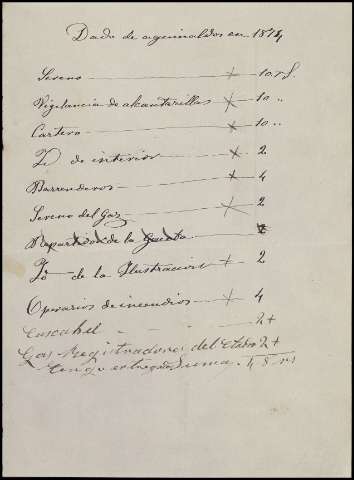 Dado de aguinaldos en 1874
Sereno + 10 rs.
Vigilancia de alcantarillas + 10 "
Cartero + 10 "
Id de interior + 2
Barrenderos + 4
Sereno del Gas + 2
Repartidor de la Gaceta
Id de la Ilustracion + 2
Operarios de incendios + 4
2 +
Gas Registradores del 2 +
Tengo entregado Suma 48 rs